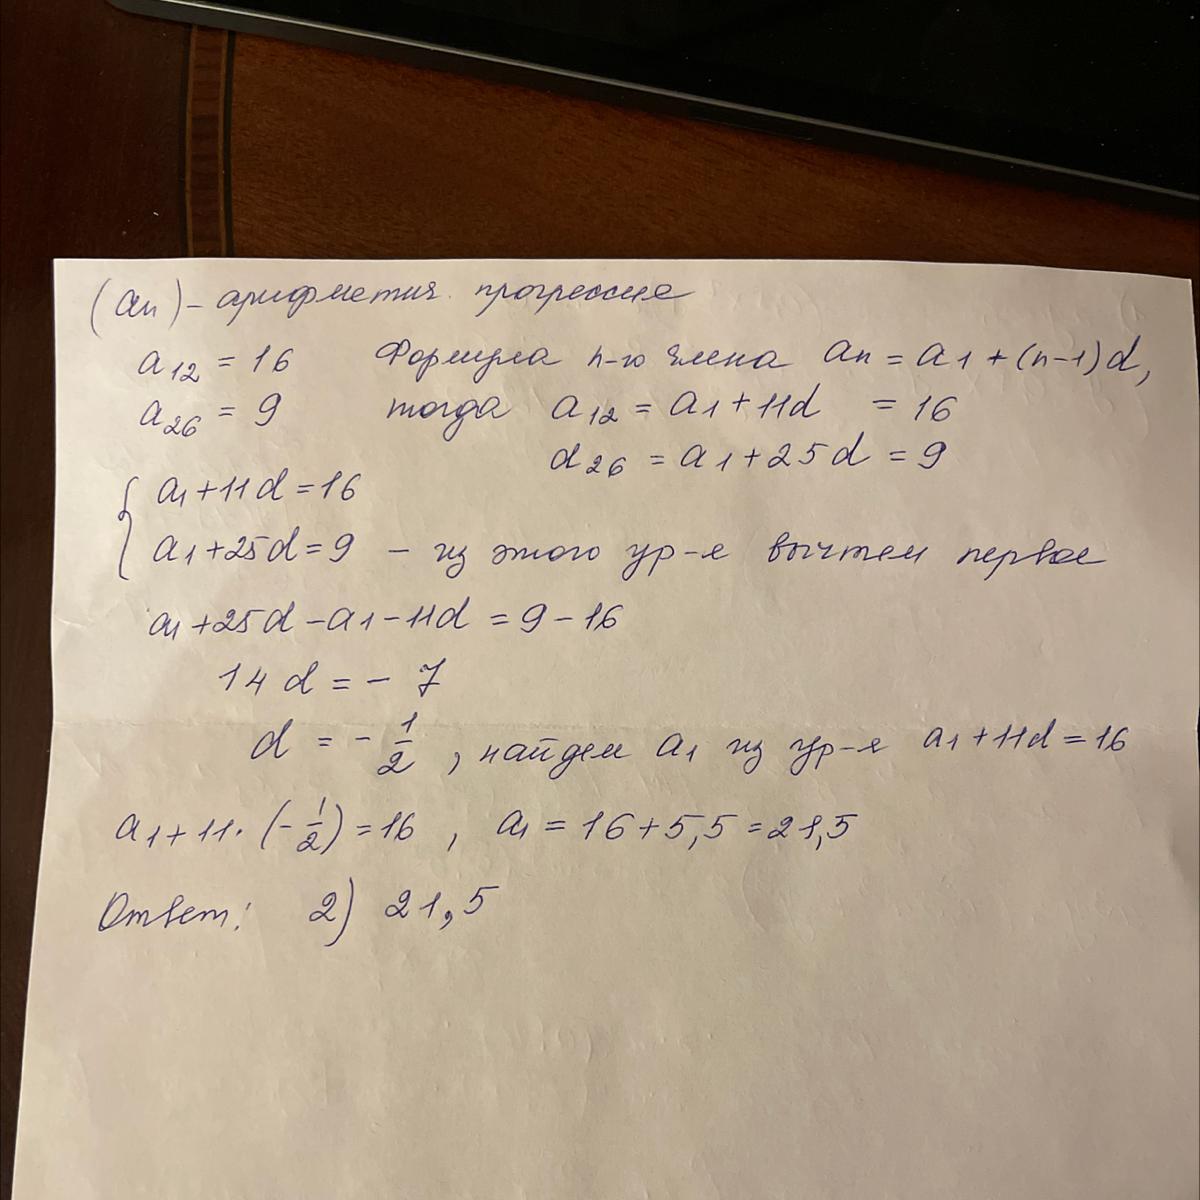 (an) - арифметич. прогрессия
a12 = 16 Формула n-го члена an = a1 + (n-1)d,
a26 = 9 тогда a12 = a1 + 11d = 16
a26 = a1 + 25d = 9
a1 + 11d = 16
a1 + 25d = 9 – из этого ур-я вычтем первое
a1 + 25d - a1 - 11d = 9 - 16
14d = - 7
d = - 1/2, найдем a1 из ур-я a1 + 11d = 16
a1 + 11 · (- 1/2) = 16, a1 = 16 + 5,5 = 21,5
Ответ: 2) 21,5